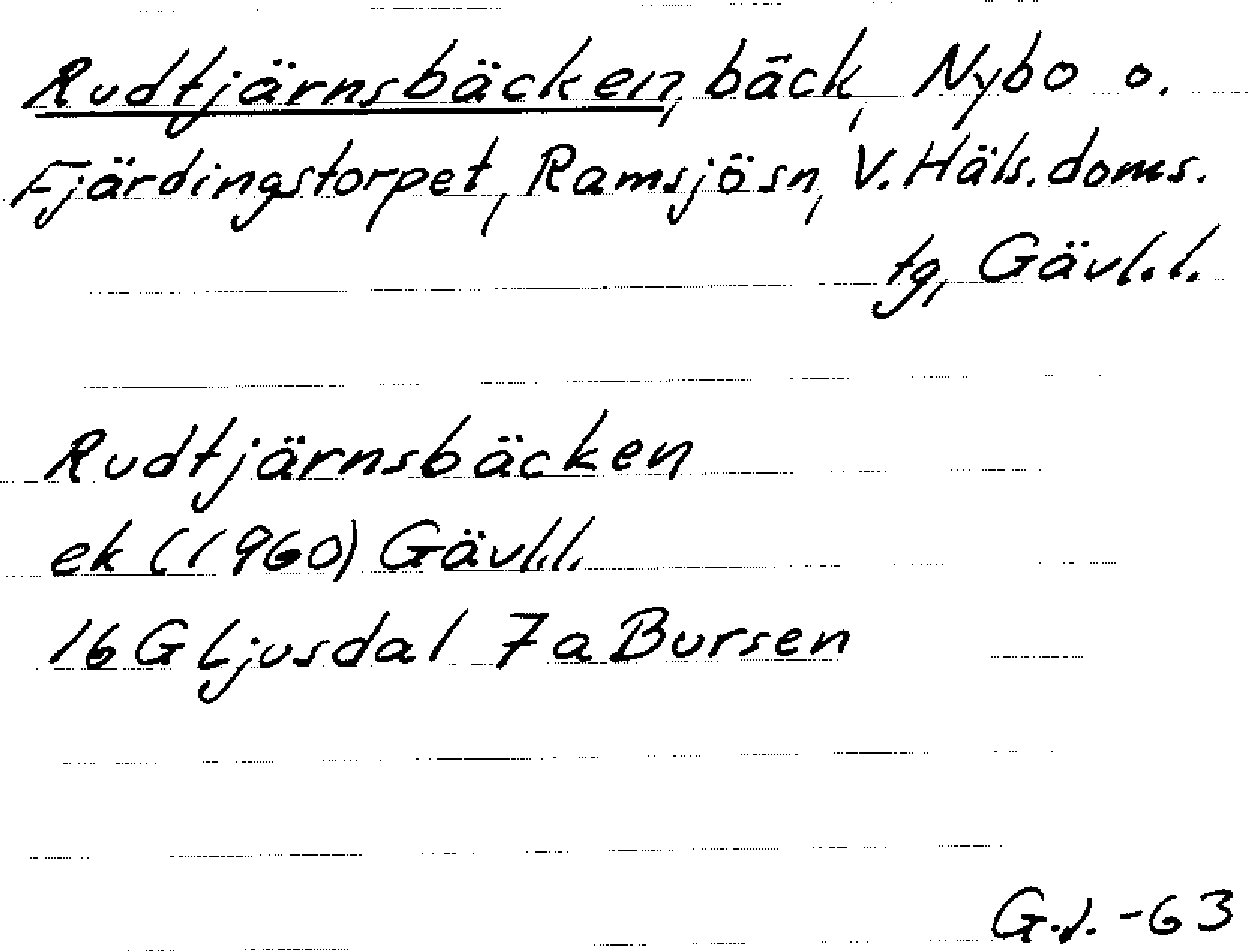 Rudtjärnsbäcken, bäck, Nybo o.
Fjärdingstorpet, Ramsjösn, V. Häls. doms.
tg, Gävl.l.
Rudtjärnsbäcken
ek (1960) Gävl.l.
16G Ljusdal 7a Bursen
G.J. -63